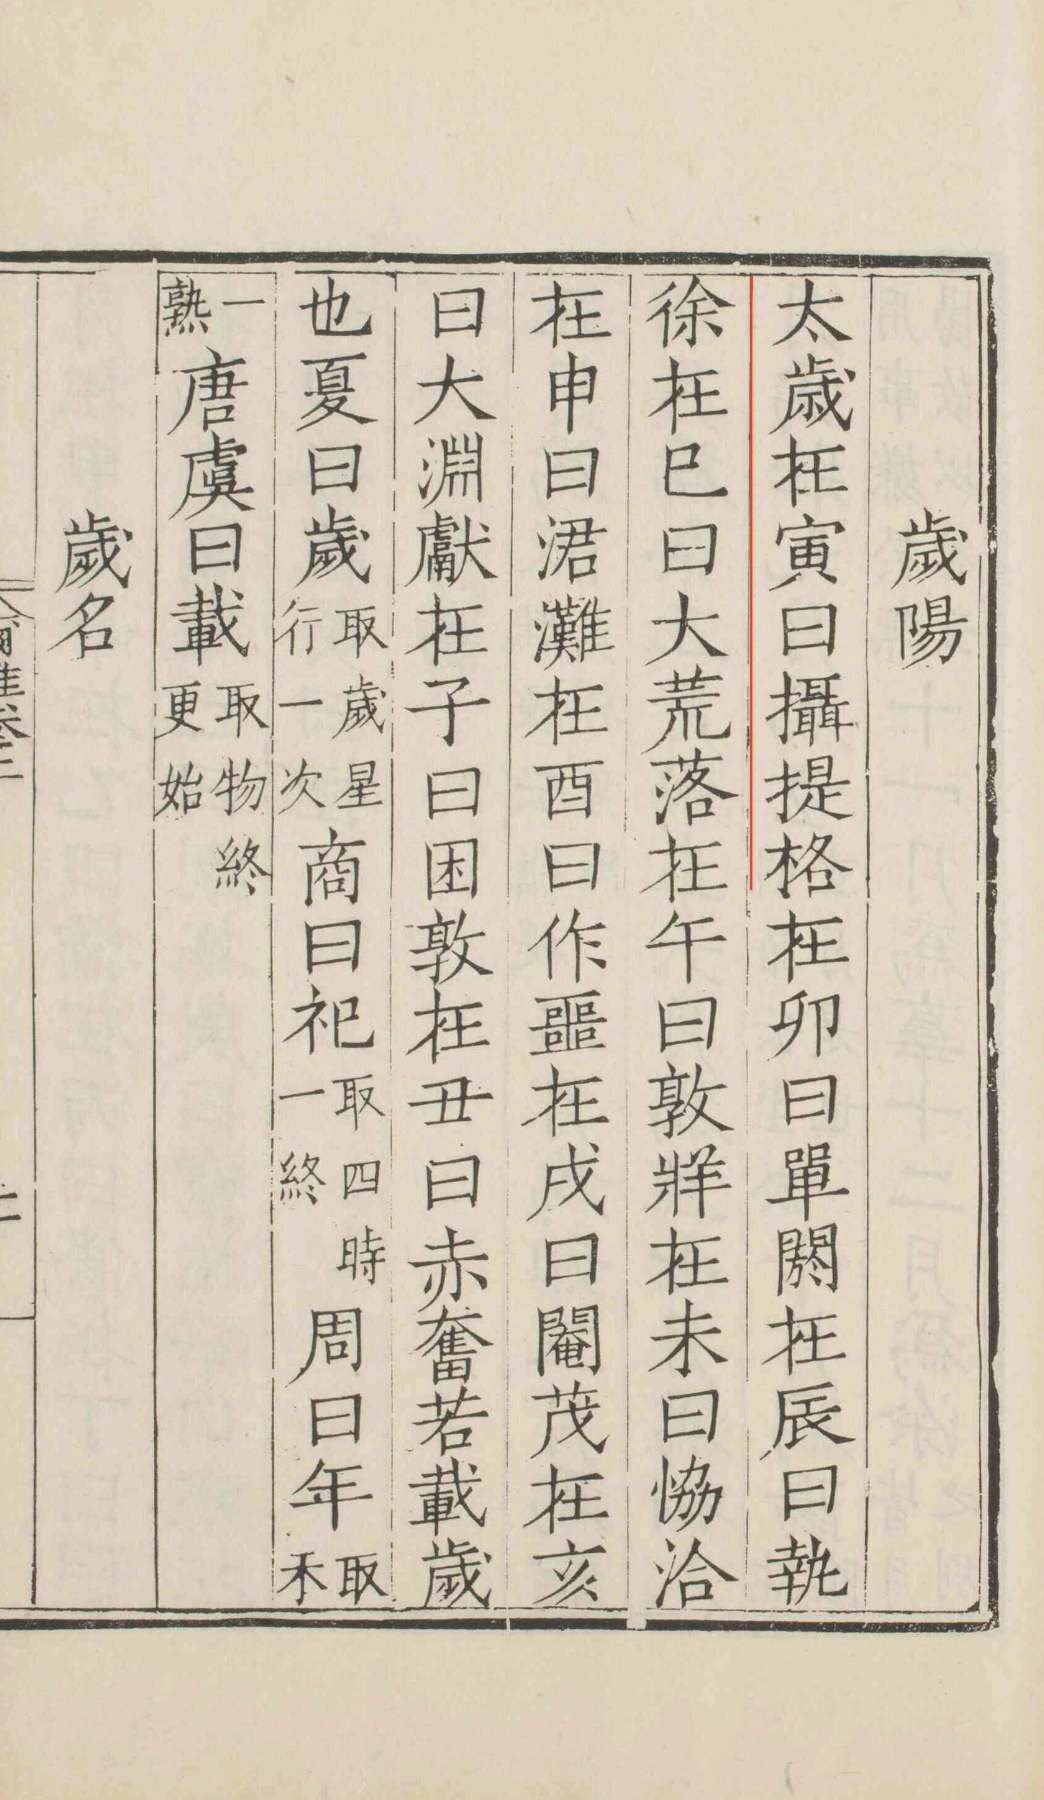 歲陽
太歲在寅曰攝提格在卯曰單閼在辰曰執
徐在巳曰大荒落在午曰敦牂在未曰協洽
在申曰涒灘在酉曰作噩在戌曰閹茂在亥
曰大淵獻在子曰困敦在丑曰赤奮若載歲
也夏曰歲取歲星行一次商曰祀取四時一終周曰年取禾
一熟唐虞曰載取物終更始
歲名